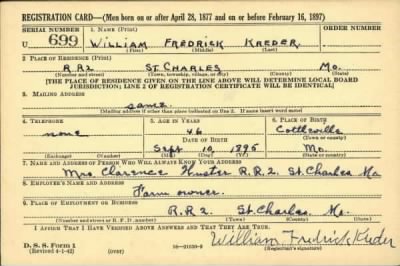 REGISTRATION CARD—(Men born on or after April 28, 1877 and on or before February 16, 1897)
SERIAL NUMBER 1. NAME (Print) ORDER NUMBER
U 699 WILLIAM FREDRICK KREDER
(First) (Middle) (Last)
2. PLACE OF RESIDENCE (Print)
R R 2. ST. CHARLES Mo.
(Number and street) (Town, township, village, or city) (County) (State)
[THE PLACE OF RESIDENCE GIVEN ON THE LINE ABOVE WILL DETERMINE LOCAL BOARD
JURISDICTION; LINE 2 OF REGISTRATION CERTIFICATE WILL BE IDENTICAL]
3. MAILING ADDRESS
same.
[Mailing address if other than place indicated on line 2. If same insert word same]
4. TELEPHONE 5. AGE IN YEARS 6. PLACE OF BIRTH
none 46 Cottleville
DATE OF BIRTH (Town or county)
Sept 10, 1895 Mo.
(Exchange) (Number) (Mo.) (Day) (Yr.) (State or country)
7. NAME AND ADDRESS OF PERSON WHO WILL ALWAYS KNOW YOUR ADDRESS
Mrs. Clarence Huster R.R. 2. St. Charles Mo
8. EMPLOYER'S NAME AND ADDRESS
Farm owner.
9. PLACE OF EMPLOYMENT OR BUSINESS
R.R. 2. St. Charles. Mo.
(Number and street or R. F. D. number) (Town) (County) (State)
I AFFIRM THAT I HAVE VERIFIED ABOVE ANSWERS AND THAT THEY ARE TRUE.
William Fredrick Kreder
D. S. S. Form 1
(Revised 4-1-42) (over) 16—21630-2 (Registrant's signature)